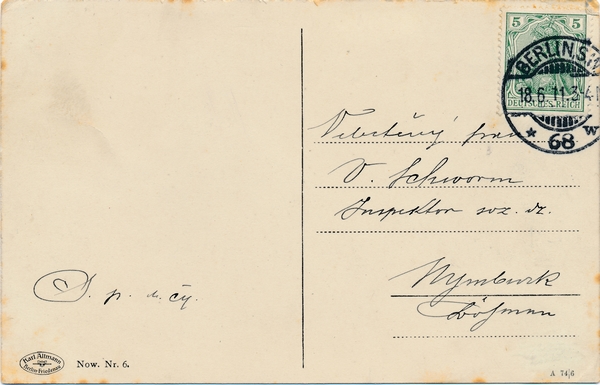 5 5
BERLIN S.W
18.6.11.3-4
DEUTSCHES REICH
* 68 w
Velectěný pan
V. Schworm
Inspektor soz. dz.
Nymburk
Böhmen
D. p. d. čy.
Karl Altmann
Berlin-Friedenau
Now. Nr. 6.
A 74/6